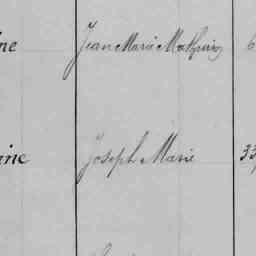 ne Jean Marie Mathurin 6
rine Joseph Marie 33